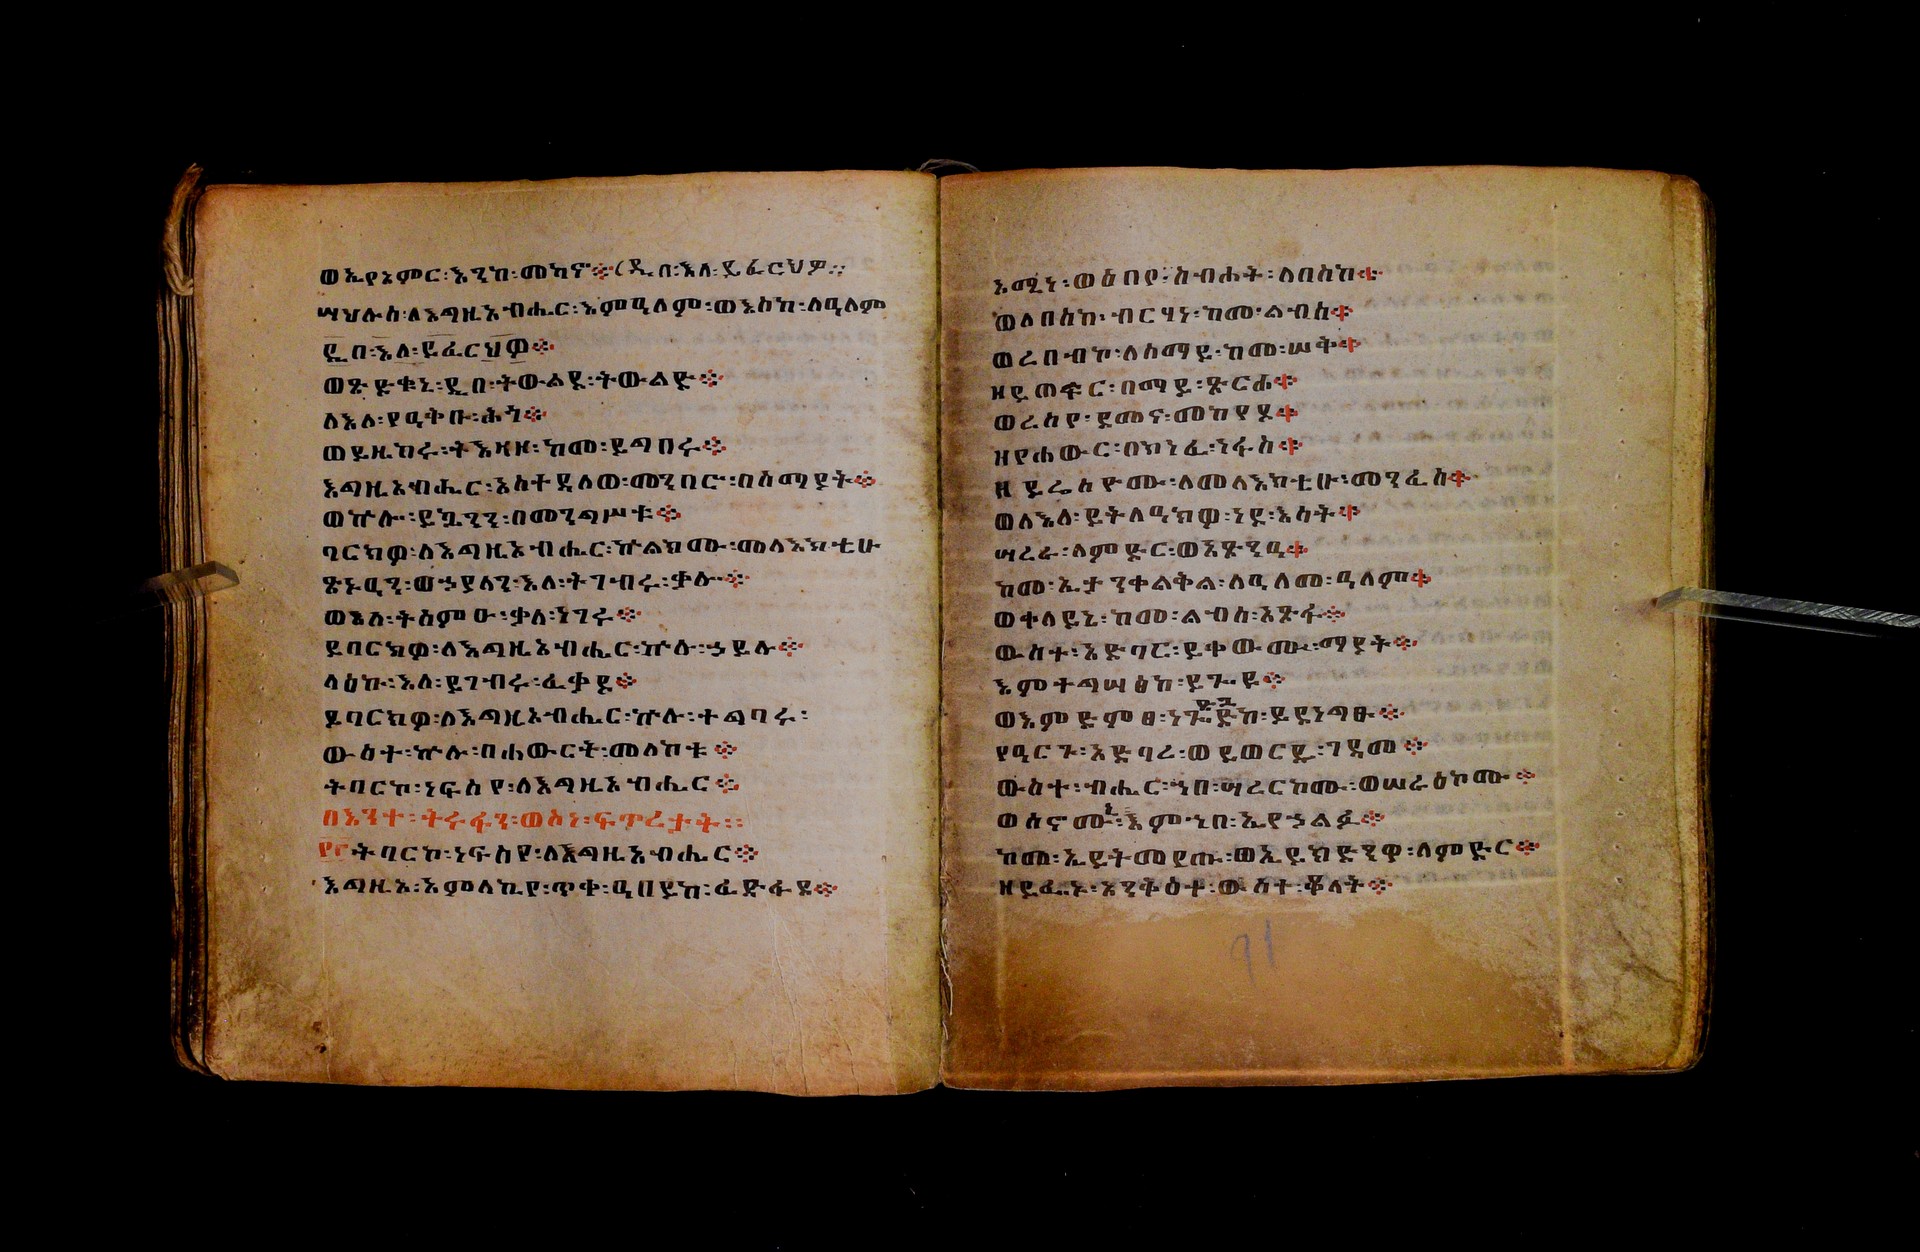 ወኢየአምር፡እንከ፡መካኖ፨(ዲበ፡እለ፡ይፈርህዎ።
ሣህሉሰ፡ለእግዚአብሔር፡እምዓለም፡ወእስከ፡ለዓለም
ዲበ፡እለ፡ይፈርህዎ፨
ወጽድቁኒ፡ዲበ፡ትውልደ፡ትውልድ፨
ለእለ፡የዓቅቡ፡ሕጎ፨
ወይዜከሩ፡ትእዛዞ፡ከመ፡ይግበሩ፨
እግዚአብሔር፡አስተዳለወ፡መንበሮ፡በሰማያት፨
ወኵሉ፡ይኳንን፡በመንግሥቱ፨
ባርክዎ፡ለእግዚአብሔር፡ኵልክሙ፡መላእክቲሁ
ጽኑዓን፡ወኃያላን፡እለ፡ትገብሩ፡ቃሉ፨
ወእለ፡ትሰምዑ፡ቃለ፡ነገሩ፨
ይባርክዎ፡ለእግዚአብሔር፡ኵሉ፡ኃይሉ፨
ላዕኩ፡እለ፡ይገብሩ፡ፈቃዶ፨
ይባርክዎ፡ለእግዚአብሔር፡ኵሉ፡ተግባሩ፡
ውስተ፡ኵሉ፡በሐውርት፡መለኮቱ፨
ትባርኮ፡ነፍስየ፡ለእግዚአብሔር፨
በእንተ፡ትሩፋን፡ወስነ፡ፍጥረታት፡፡
፻፫ትባርኮ፡ነፍስየ፡ለእግዚአብሔር፨
እግዚኦ፡አምላኪየ፡ጥቀ፡ዓበይከ፡ፈድፋደ፨
አሚነ፡ወሰናየ፡ስብሐት፡ለበስከ፨
ወለበስከ፡ብርሃነ፡ከመ፡ልብስ፨
ወረበብኮ፡ለሰማይ፡ከመ፡ሠቅ፨
ዘይጠፍር፡በማይ፡ጽርሖ፨
ወረሰየ፡ደመና፡መከየዶ፨
ዘየሐውር፡በክነፈ፡ነፋስ፨
ዘይሬስዮሙ፡ለመላእክቲሁ፡መንፈስ፨
ወለእለ፡ይትለዓክዎ፡ነደ፡እሳት፨
ሣረራ፡ለምድር፡ወአጽንዓ፨
ከመ፡ኢታንቀልቅል፡ለዓለመ፡ዓለም፨
ወቀላይኒ፡ከመ፡ልብስ፡አጽፋ፨
ውስተ፡አድባር፡ይቀውሙ፡ማያት፨
እምተግሣፅከ፡ይጐዪ፨
ወእምድምፀ፡ነጐድጓድከ፡ይደነግፁ፨
የዓርጉ፡አድባረ፡ወይወርዱ፡ገዳመ፨
ውስተ፡ብሔር፡ኀበ፡ሣረርከሙ፡ወሠራዕኮሙ፨
ወሰኖሙ፡እምኀበ፡ኢየኃልፉ፨
ከመ፡ኢይትመየጡ፡ወኢይክድንዋ፡ለምድር፨
ዘይፌኑ፡አንቅዕተ፡ውስተ፡ቈላት፨
91